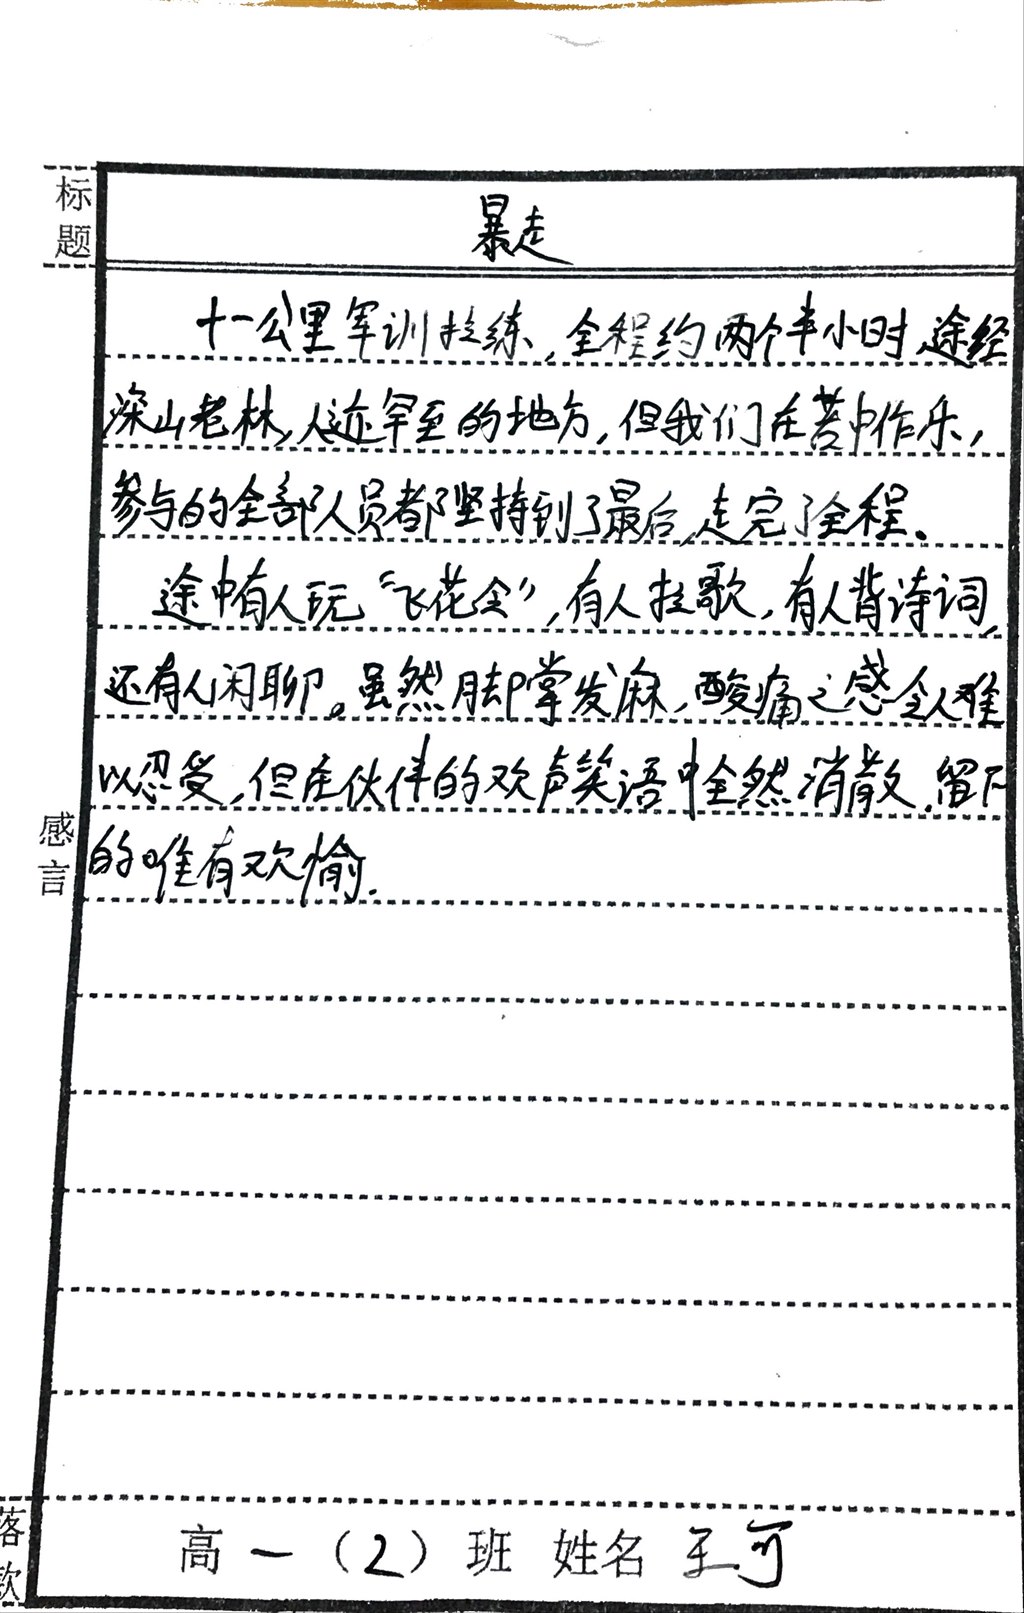 标题
暴走
十一公里军训拉练,全程约两个半小时,途经
深山老林,人迹罕至的地方,但我们在苦中作乐,
参与的全部队员都坚持到了最后,走完了全程。
途中有人玩“飞花令”,有人拉歌,有人背诗词,
还有人闲聊。虽然脚掌发麻,酸痛之感令人难
以忍受,但在伙伴的欢声笑语中全然消散,留下
的唯有欢愉.
感言
落款
高一(2)班 姓名 王可